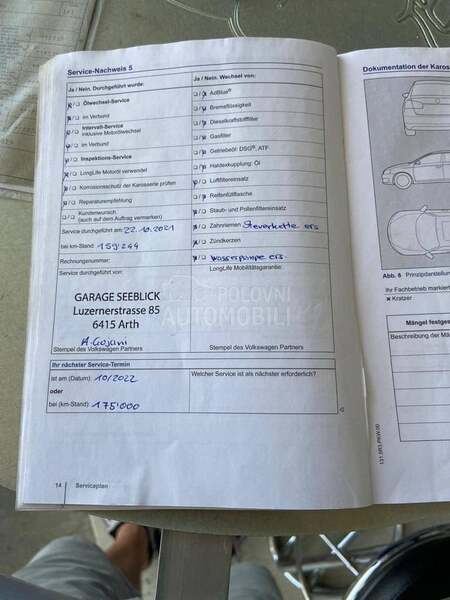 Service-Nachweis 5
Ja / Nein. Durchgeführt wurde:
Ölwechsel-Service
im Verbund
Intervall-Service
inklusive Motorölwechsel
im Verbund
Inspektions-Service
LongLife Motoröl verwendet
Korrosionsschutz der Karosserie prüfen
Reparaturempfehlung
Kundenwunsch
(auch auf dem Auftrag vermerken)
Service durchgeführt am: 22.10.2021
bei km-Stand: 159'244
Rechnungsnummer:
Service durchgeführt von:
GARAGE SEEBLICK
Luzernerstrasse 85
6415 Arth
Stempel des Volkswagen Partners
Ja / Nein. Wechsel von:
AdBlue®
Bremsflüssigkeit
Dieselkraftstofffilter
Gasfilter
Getriebeöl: DSG®, ATF
Haldexkupplung: Öl
Luftfiltereinsatz
Reifenfüllflasche
Staub- und Pollenfiltereinsatz
Zahnriemen Steuerkette ers.
Zündkerzen
Wasserpumpe ers.
LongLife Mobilitätsgarantie:
Stempel des Volkswagen Partners
POLOVNI
AUTOMOBILI
Ihr nächster Service-Termin
ist am (Datum): 10/2022
oder
bei (km-Stand): 175'000
Welcher Service ist als nächster erforderlich?
14 Serviceplan
Dokumentation der Karos
Abb. 8 Prinzipdarstellun
Ihr Fachbetrieb markier
× Kratzer
Mängel festges
Beschreibung der Mä